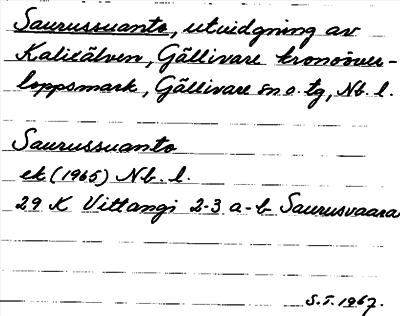 Saurussuanto, utvidgning av
Kalixälven, Gällivare kronoöver-
loppsmark, Gällivare sn o. tg, Nb. l.
Saurussuanto
ek (1965) Nb. l.
29 K Vittangi 2-3 a-b Saurusvaara
S.T. 1967.